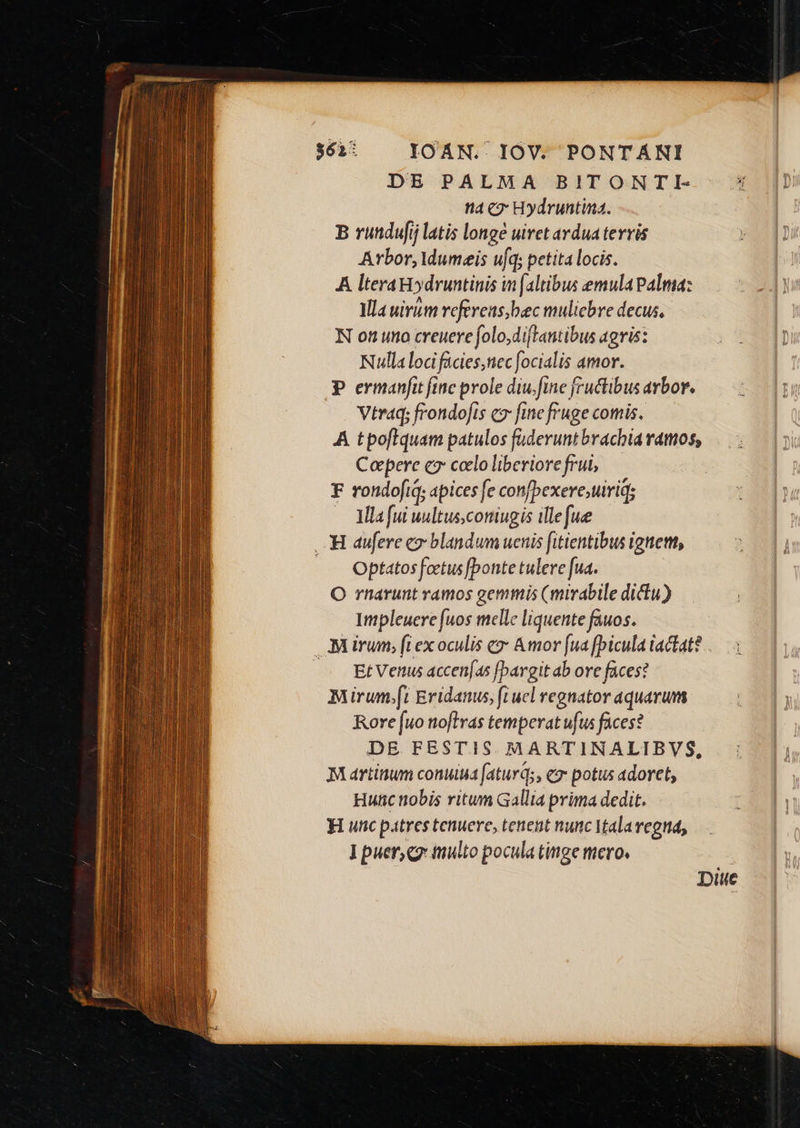 362 IOAN. IOV. PONTANI
DE PALMA BITONTI-
na & Hydruntina.
B runduſij latis longè uiret ardua terris
Arbor, Idumæis uſq; petita locis.
A ltera Hydruntinis in ſaltibus æmula Palma:
Illa uirùm referens, hæc muliebre decus.
N on uno creuere ſolo, diſtantibus agris:
Nulla loci facies, nec ſocialis amor.
P ermanſit ſine prole diu, ſine fructibus arbor.
Vtraq; frondoſis & ſine fruge comis.
A t poſtquam patulos fuderunt brachia ramos,
Cœpere & cœlo liberiore frui,
F rondoſiq; apices ſe conſpexere, uiriq;
Illa ſui uultus, coniugis ille ſuæ
H auſere & blandum uenis ſitientibus ignem,
Optatos fœtus ſponte tulere ſua.
O rnarunt ramos gemmis (mirabile dictu)
Impleuere ſuos melle liquente fauos.
M irum, ſi ex oculis & Amor ſua ſpicula iactat?
Et Venus accenſas ſpargit ab ore faces?
M irum, ſi Eridanus, ſi uel regnator aquarum
Rore ſuo noſtras temperat uſus faces?
DE FESTIS MARTINALIBVS,
M artinum conuiua ſaturq;, & potus adoret,
Hunc nobis ritum Gallia prima dedit.
H unc patres tenuere, tenent nunc Itala regna,
I puer, & multo pocula tinge mero.
Diue